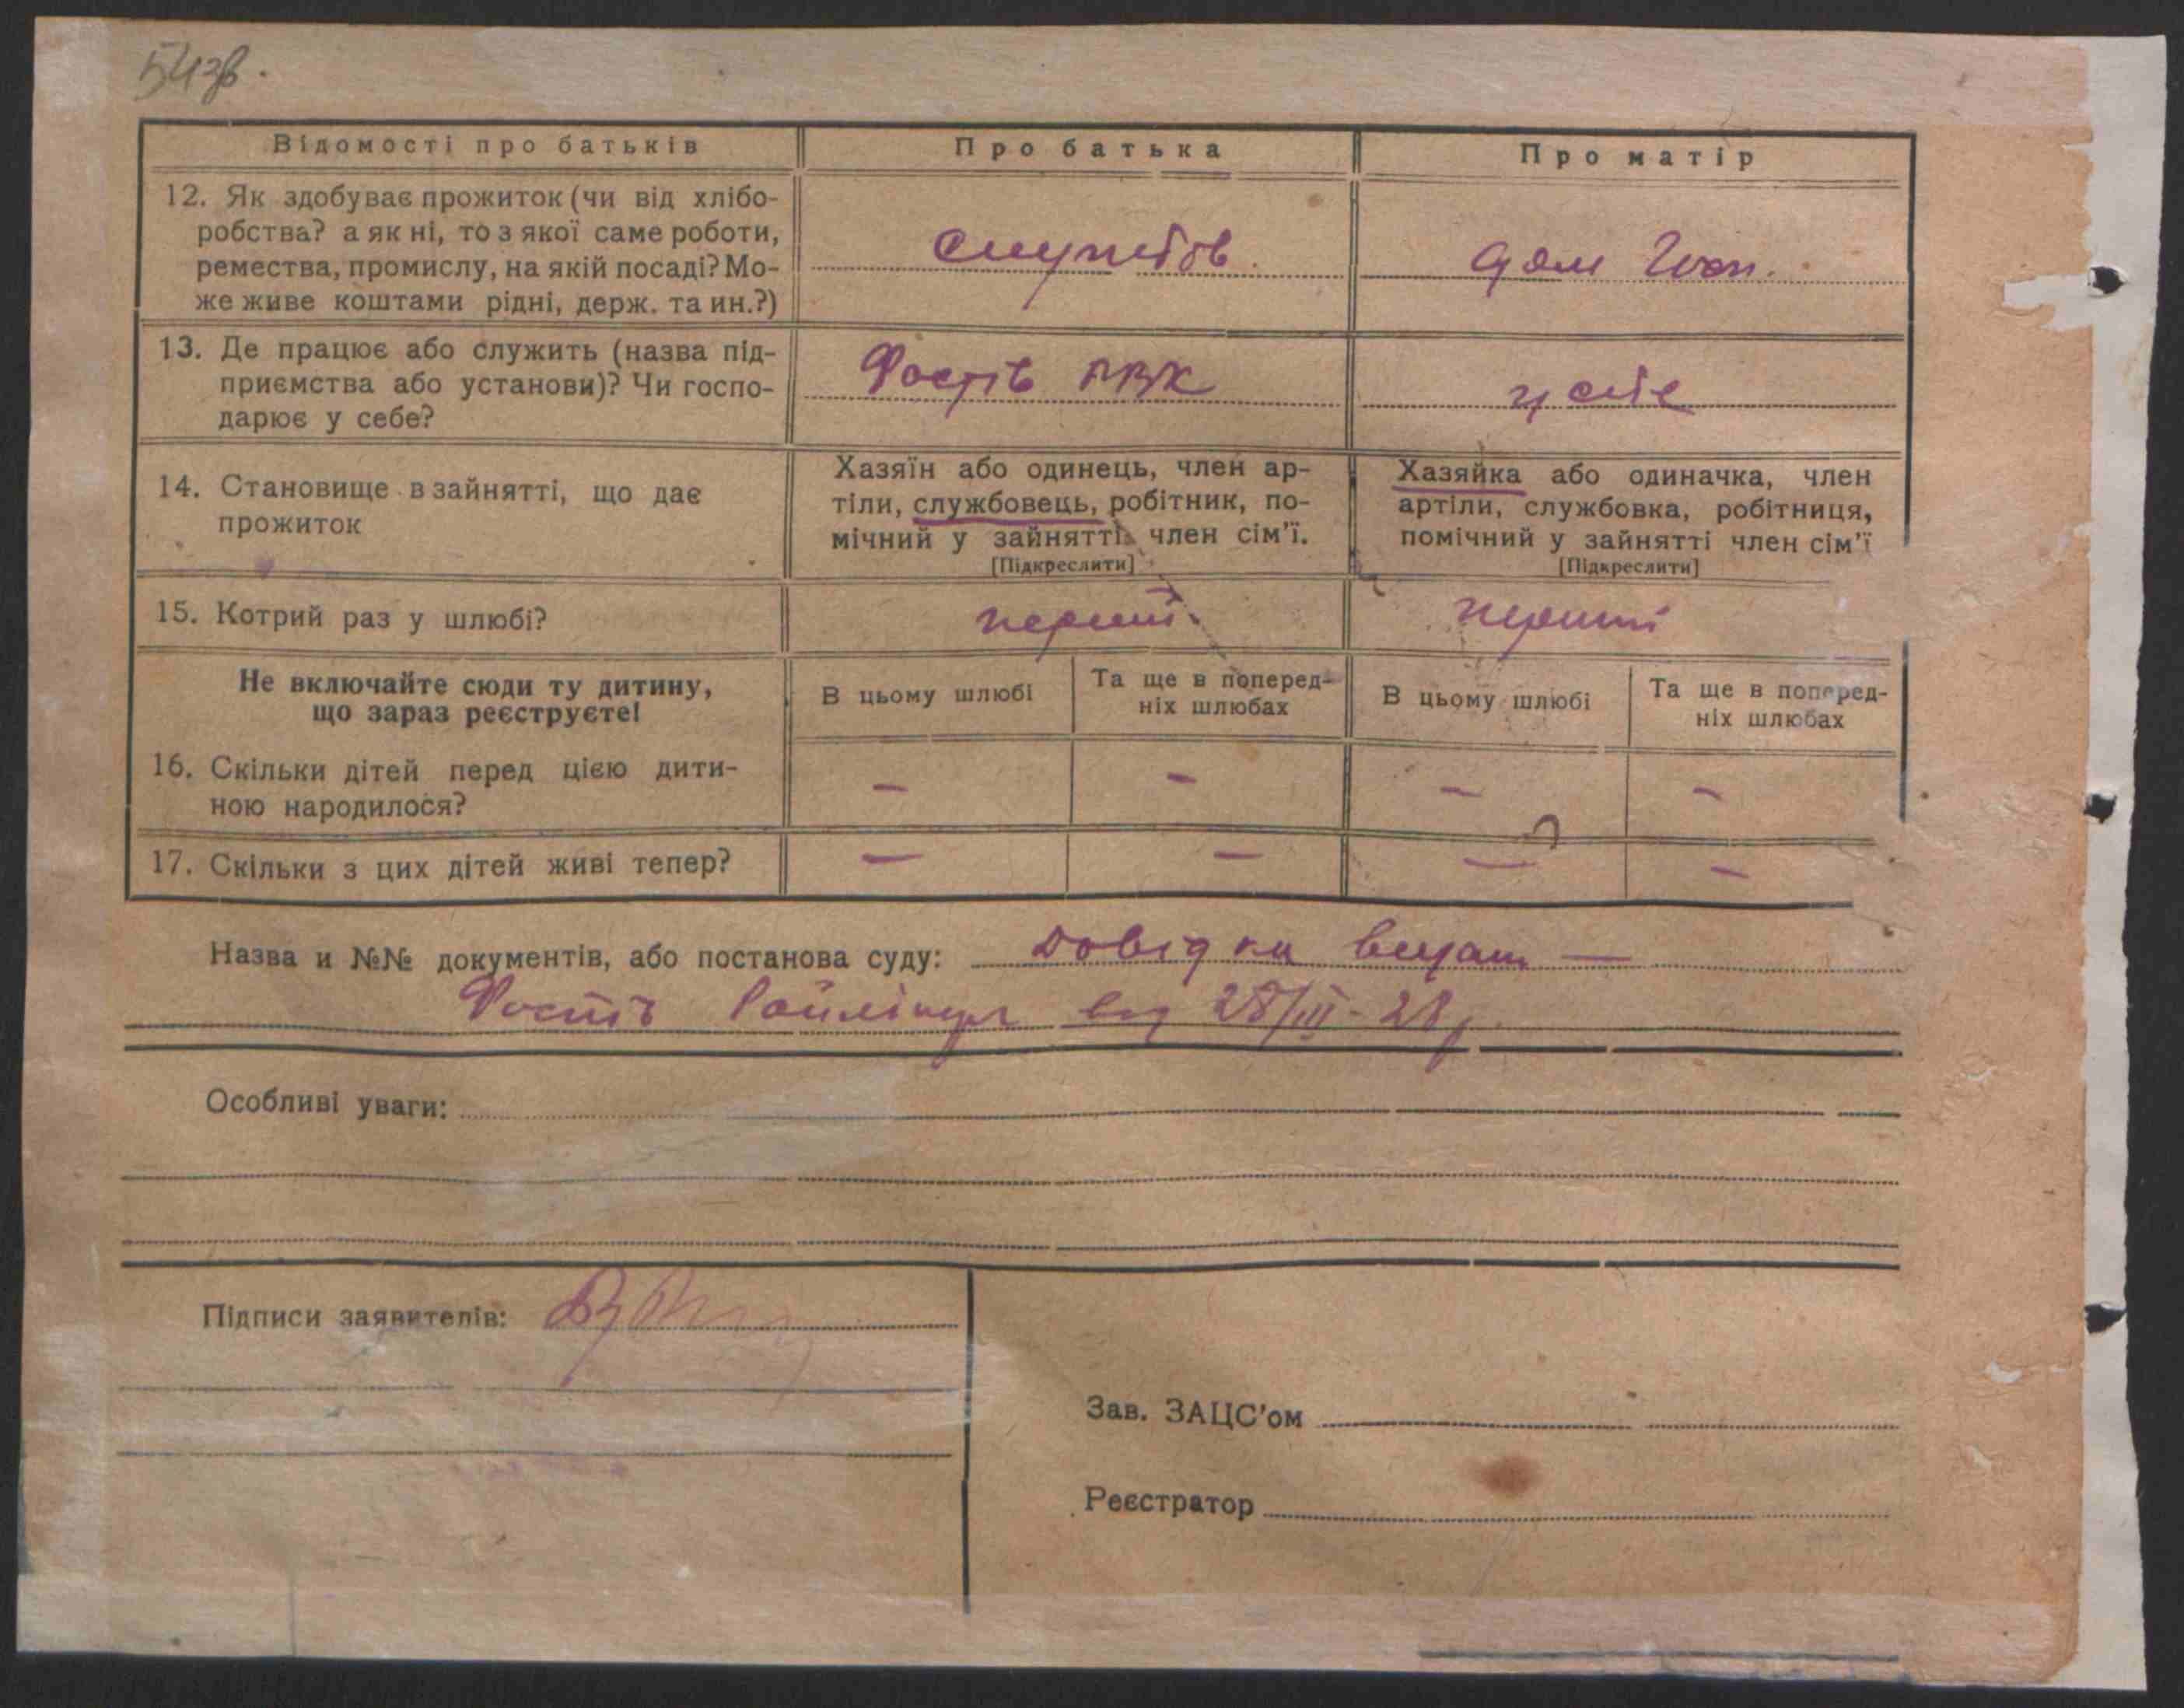 54зв.
Відомості про батьків
Про батька
Про матір
12. Як здобуває прожиток (чи від хлібо-
робства? а як ні, то з якої саме роботи,
ремества, промислу, на якій посаді? Мо-
же живе коштами рідні, держ. та ин.?)
службов.
дом госп.
13. Де працює або служить (назва під-
приємства або установи)? Чи госпо-
дарює у себе?
Фастів РВК
у себе
14. Становище в зайнятті, що дає
прожиток
Хазяїн або одинець, член ар-
тіли, службовець, робітник, по-
мічний у зайнятті член сім'ї.
[Підкреслити]
Хазяйка або одиначка, член
артіли, службовка, робітниця,
помічний у зайнятті член сім'ї
[Підкреслити]
15. Котрий раз у шлюбі?
перший
перший
Не включайте сюди ту дитину,
що зараз реєструєте!
В цьому шлюбі
Та ще в поперед-
ніх шлюбах
В цьому шлюбі
Та ще в поперед-
ніх шлюбах
16. Скільки дітей перед цією дити-
ною народилося?
– – – –
17. Скільки з цих дітей живі тепер?
– – – –
Назва и №№ документів, або постанова суду: Довідки —
Фастів від 28/III-28р.
Особливі уваги:
Підписи заявителів:
Зав. ЗАЦС'ом
Реєстратор